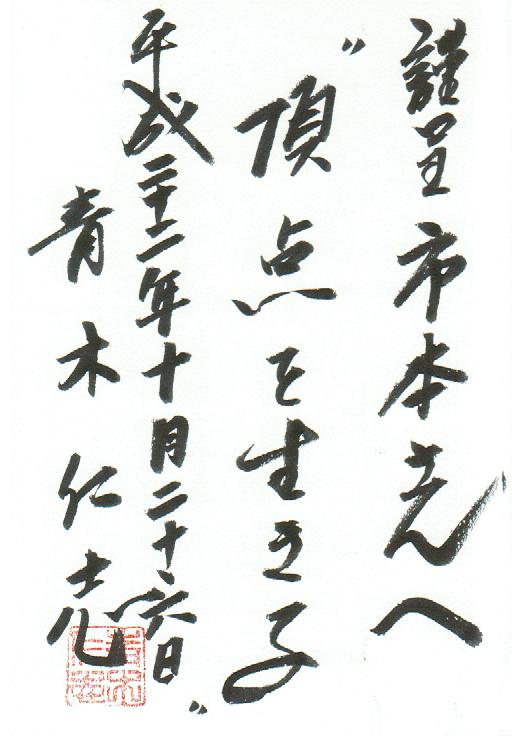 謹呈市本へ
〝頂点を生きる〟
平成二十二年十月二十六日
青木仁志